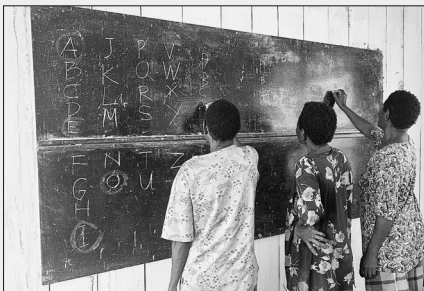 A J P V
B K Q W
C L R X
D M S Y
E
F N T Z
G O U
H
I